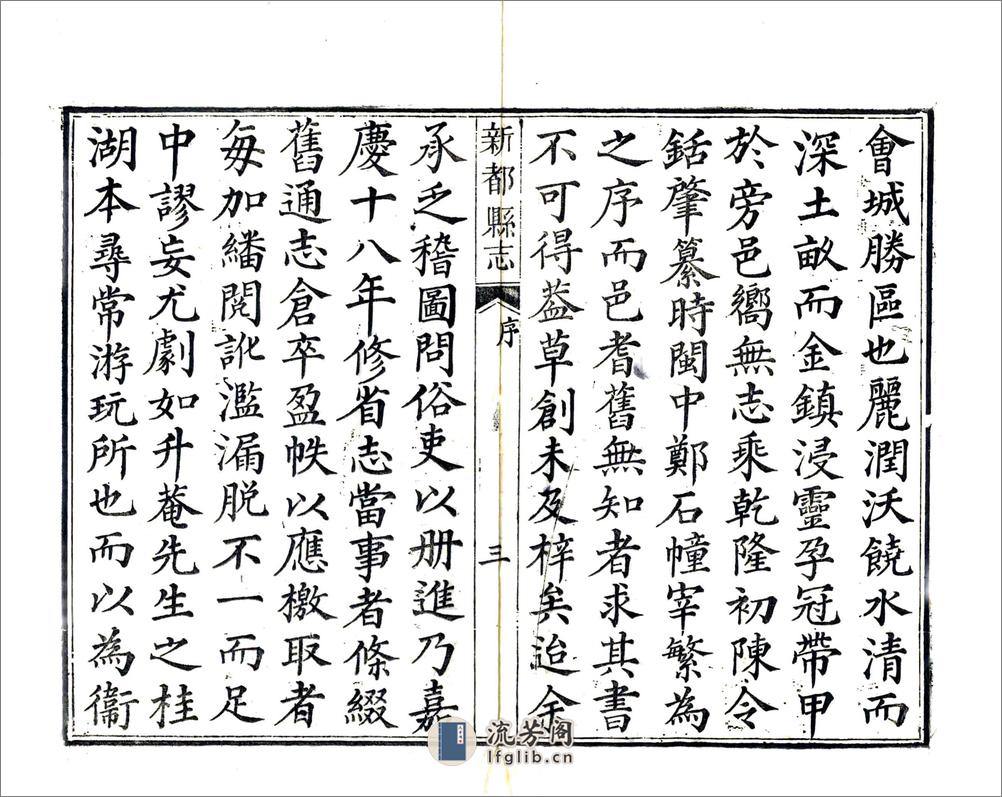 會城勝區也麗潤沃饒水清而
深土畝而金鎮浸靈孕冠帶甲
於旁邑嚮無志乘乾隆初陳令
銛肇纂時閩中鄭石幢宰繁為
之序而邑耆舊無知者求其書
不可得葢草創未及梓矣迨余
新都縣志
序
三
承乏稽圖問俗吏以册進乃嘉
慶十八年修省志當事者條綴
舊通志倉卒盈帙以應檄取者
每加繙閱訛濫漏脱不一而足
中謬妄尤劇如升菴先生之桂
湖本尋常游玩所也而以為衞
流芳阁
lfglib.cn